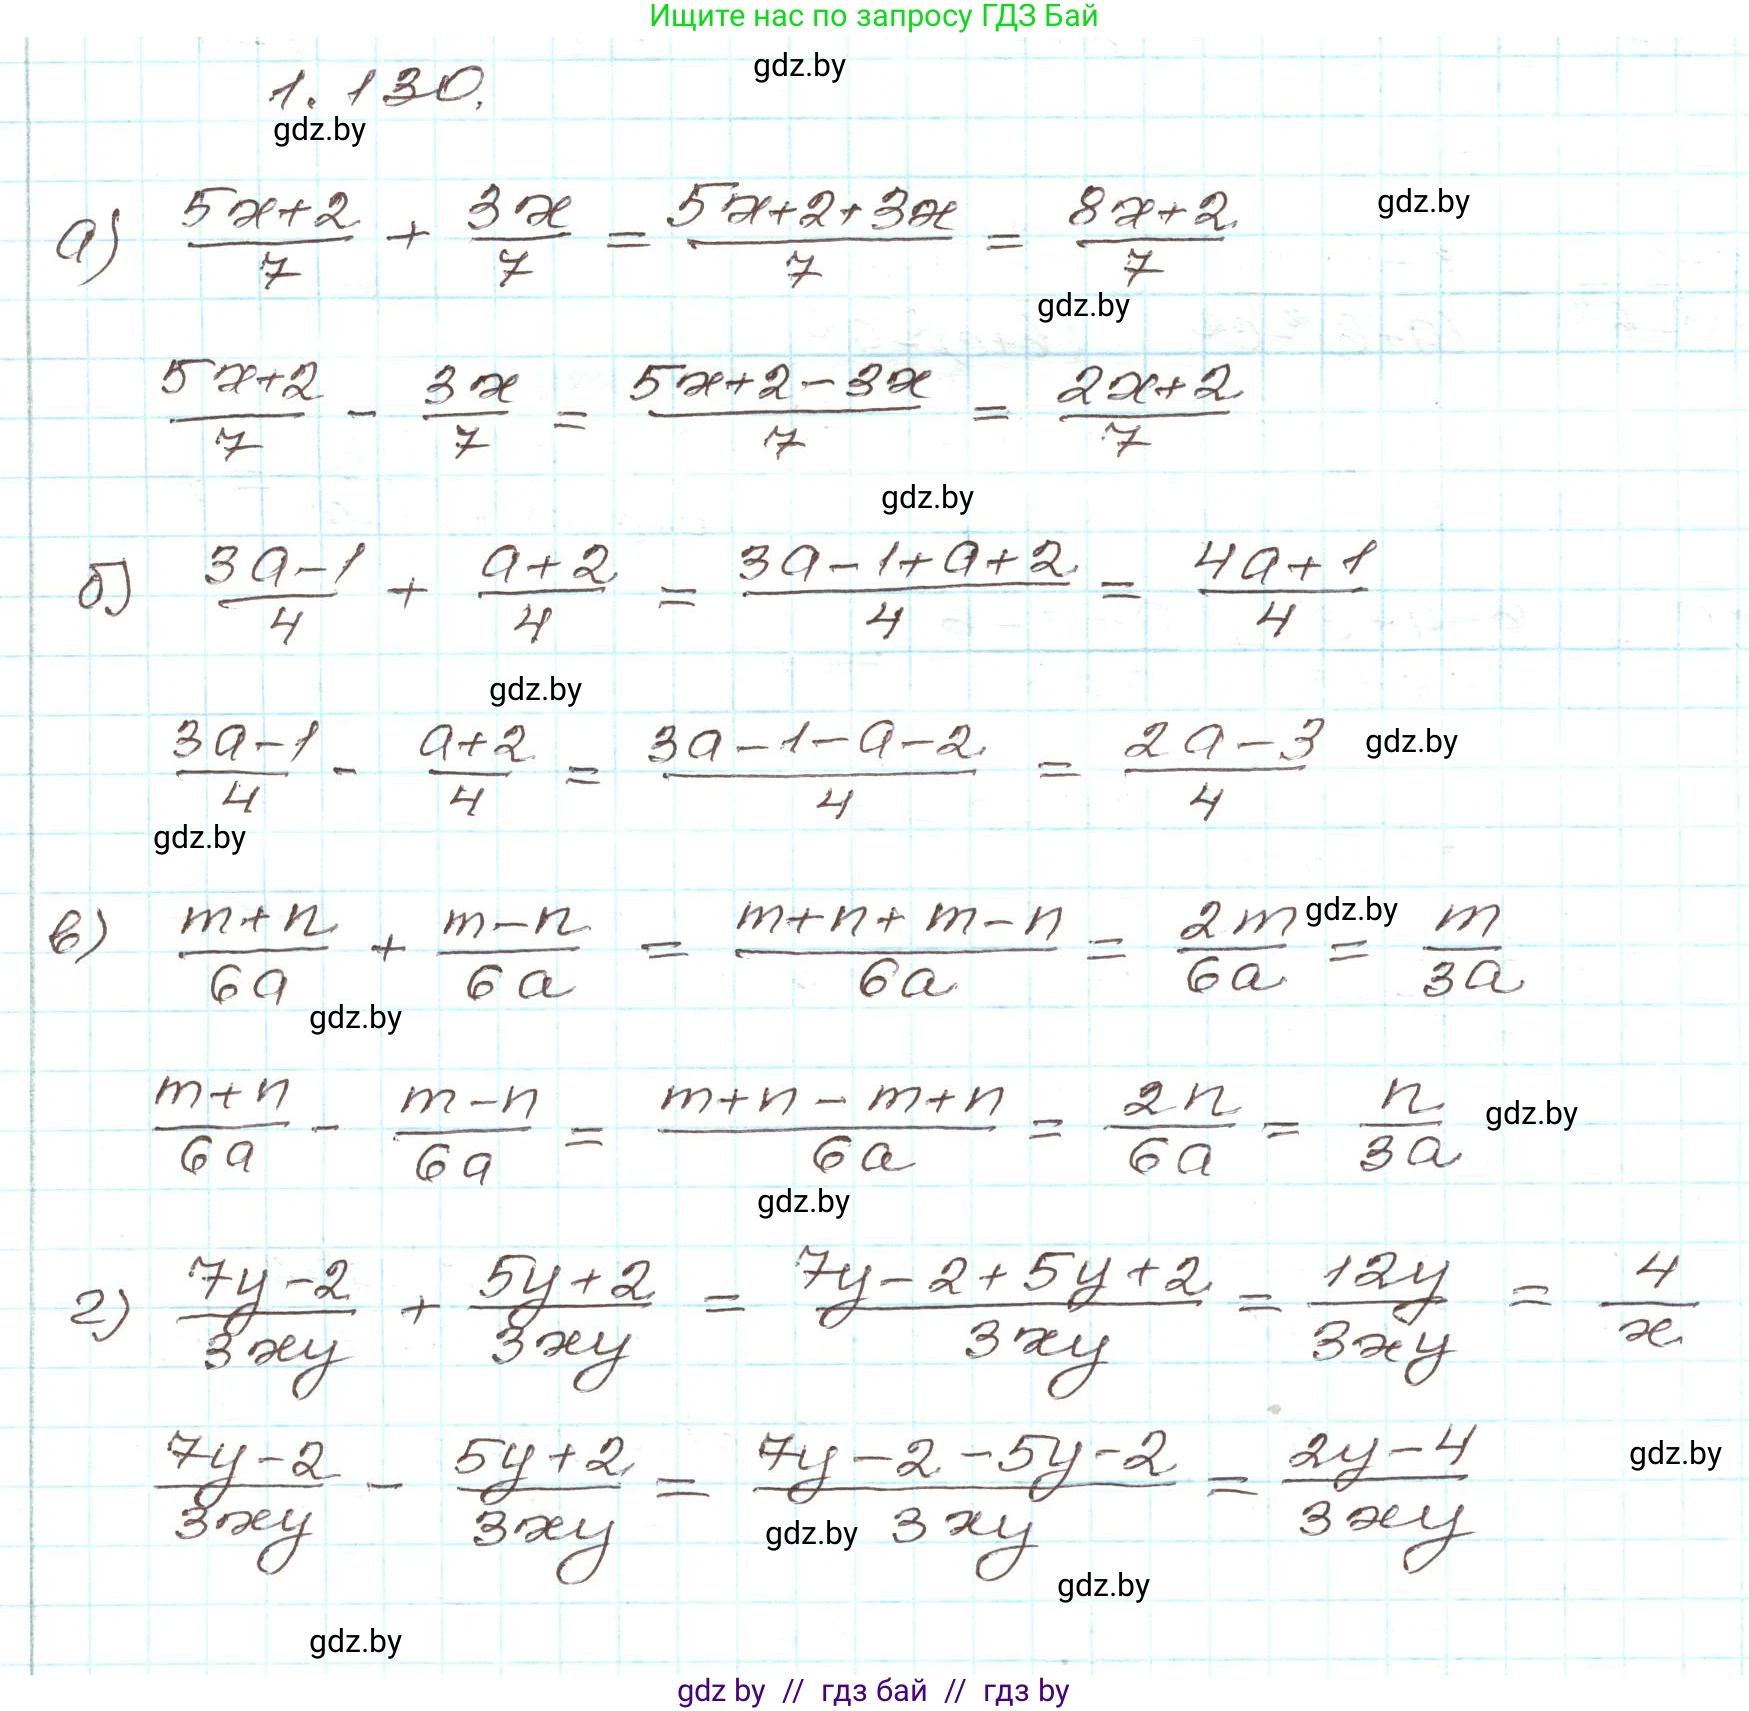 Ищите нас по запросу ГДЗ Бай
gdz.by
1.130.
gdz.by
а) (5x+2)/7 + 3x/7 = (5x+2+3x)/7 = (8x+2)/7
gdz.by
gdz.by
(5x+2)/7 - 3x/7 = (5x+2-3x)/7 = (2x+2)/7
gdz.by
б) (3a-1)/4 + (a+2)/4 = (3a-1+a+2)/4 = (4a+1)/4
gdz.by
(3a-1)/4 - (a+2)/4 = (3a-1-a-2)/4 = (2a-3)/4
gdz.by
gdz.by
в) (m+n)/6a + (m-n)/6a = (m+n+m-n)/6a = 2m/6a = m/3a
gdz.by
gdz.by
(m+n)/6a - (m-n)/6a = (m+n-m+n)/6a = 2n/6a = n/3a
gdz.by
gdz.by
г) (7y-2)/3xy + (5y+2)/3xy = (7y-2+5y+2)/3xy = 12y/3xy = 4/x
(7y-2)/3xy - (5y+2)/3xy = (7y-2-5y-2)/3xy = (2y-4)/3xy
gdz.by
gdz.by
gdz.by
gdz.by
gdz by // гдз бай // гдз by